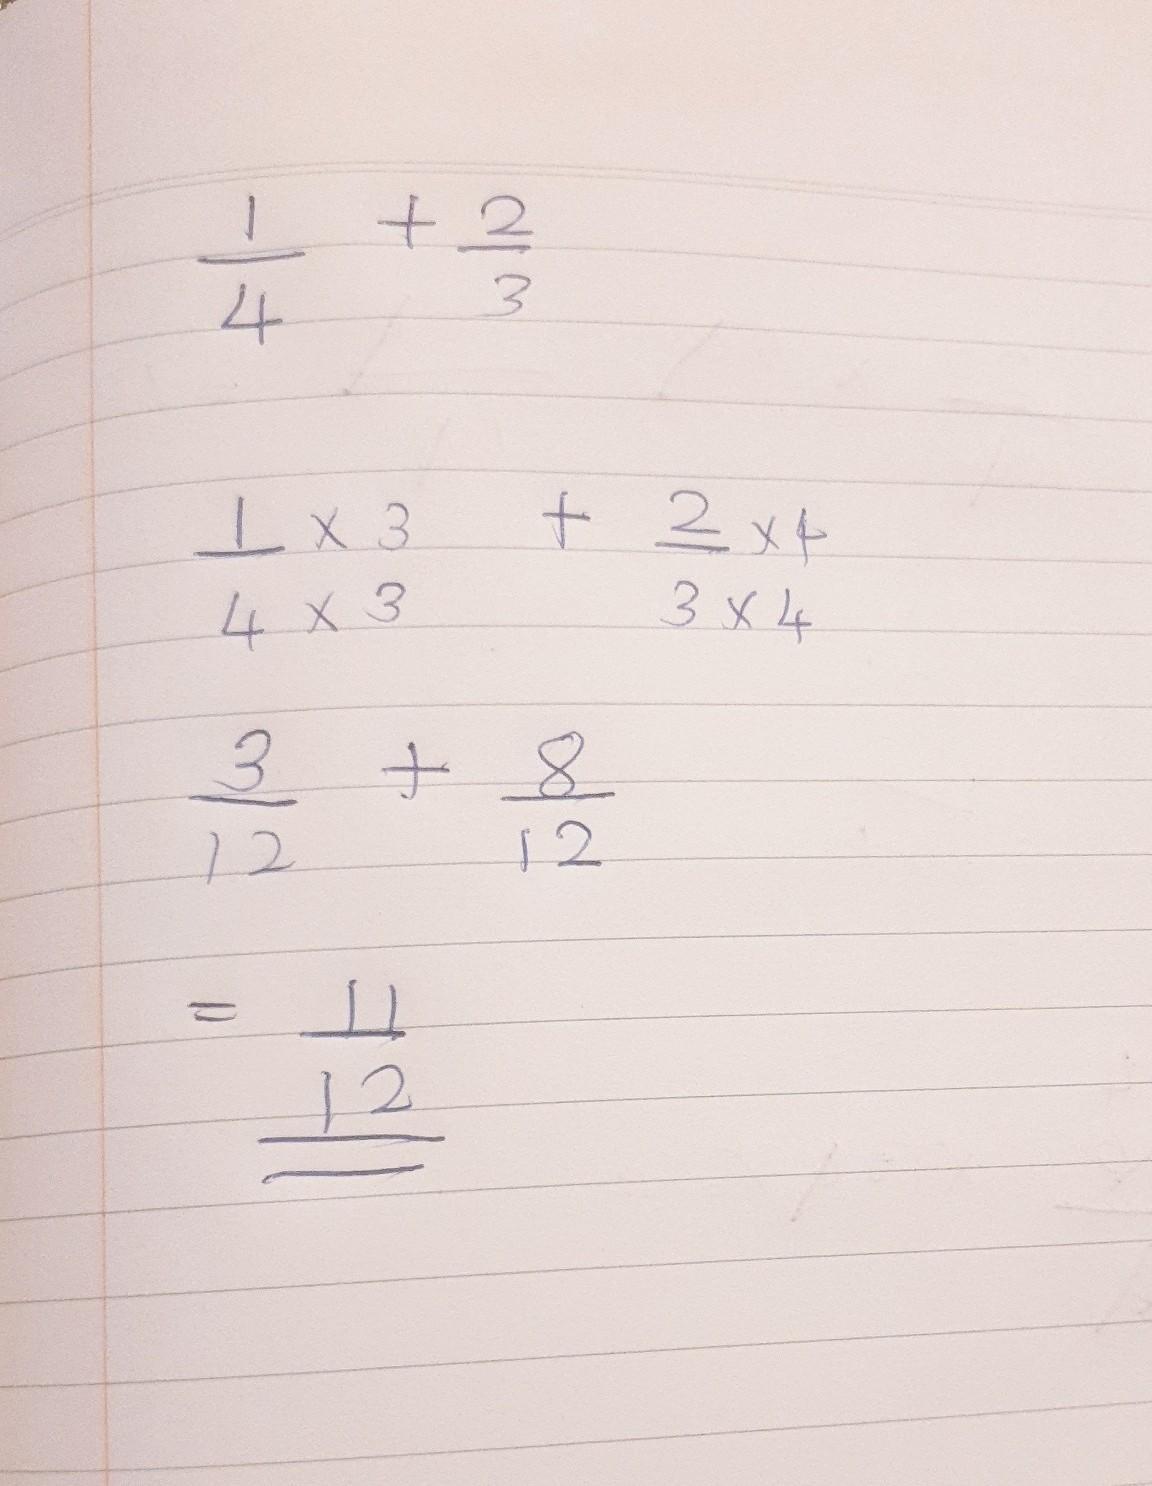 1/4 + 2/3
1 × 3/4 × 3 + 2 × 4/3 × 4
3/12 + 8/12
= 11/12